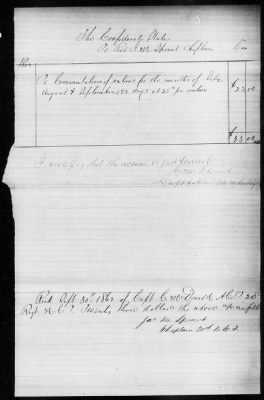 The Confederate States
To Revd J. M. Sprunt Chaplain Dr.
1862
To Commutation of rations for the months of July,
August & September 92 days at 25¢ per ration $23.00
$23.00
I certify that the account is just & correct
Recd Sept. 30th 1862 of Capt. McDonald A.C.S. 20th
Regt. N.C.T. Twenty three dollars the above in full
Jas M. Sprunt
Chaplain 20th N.C.T.